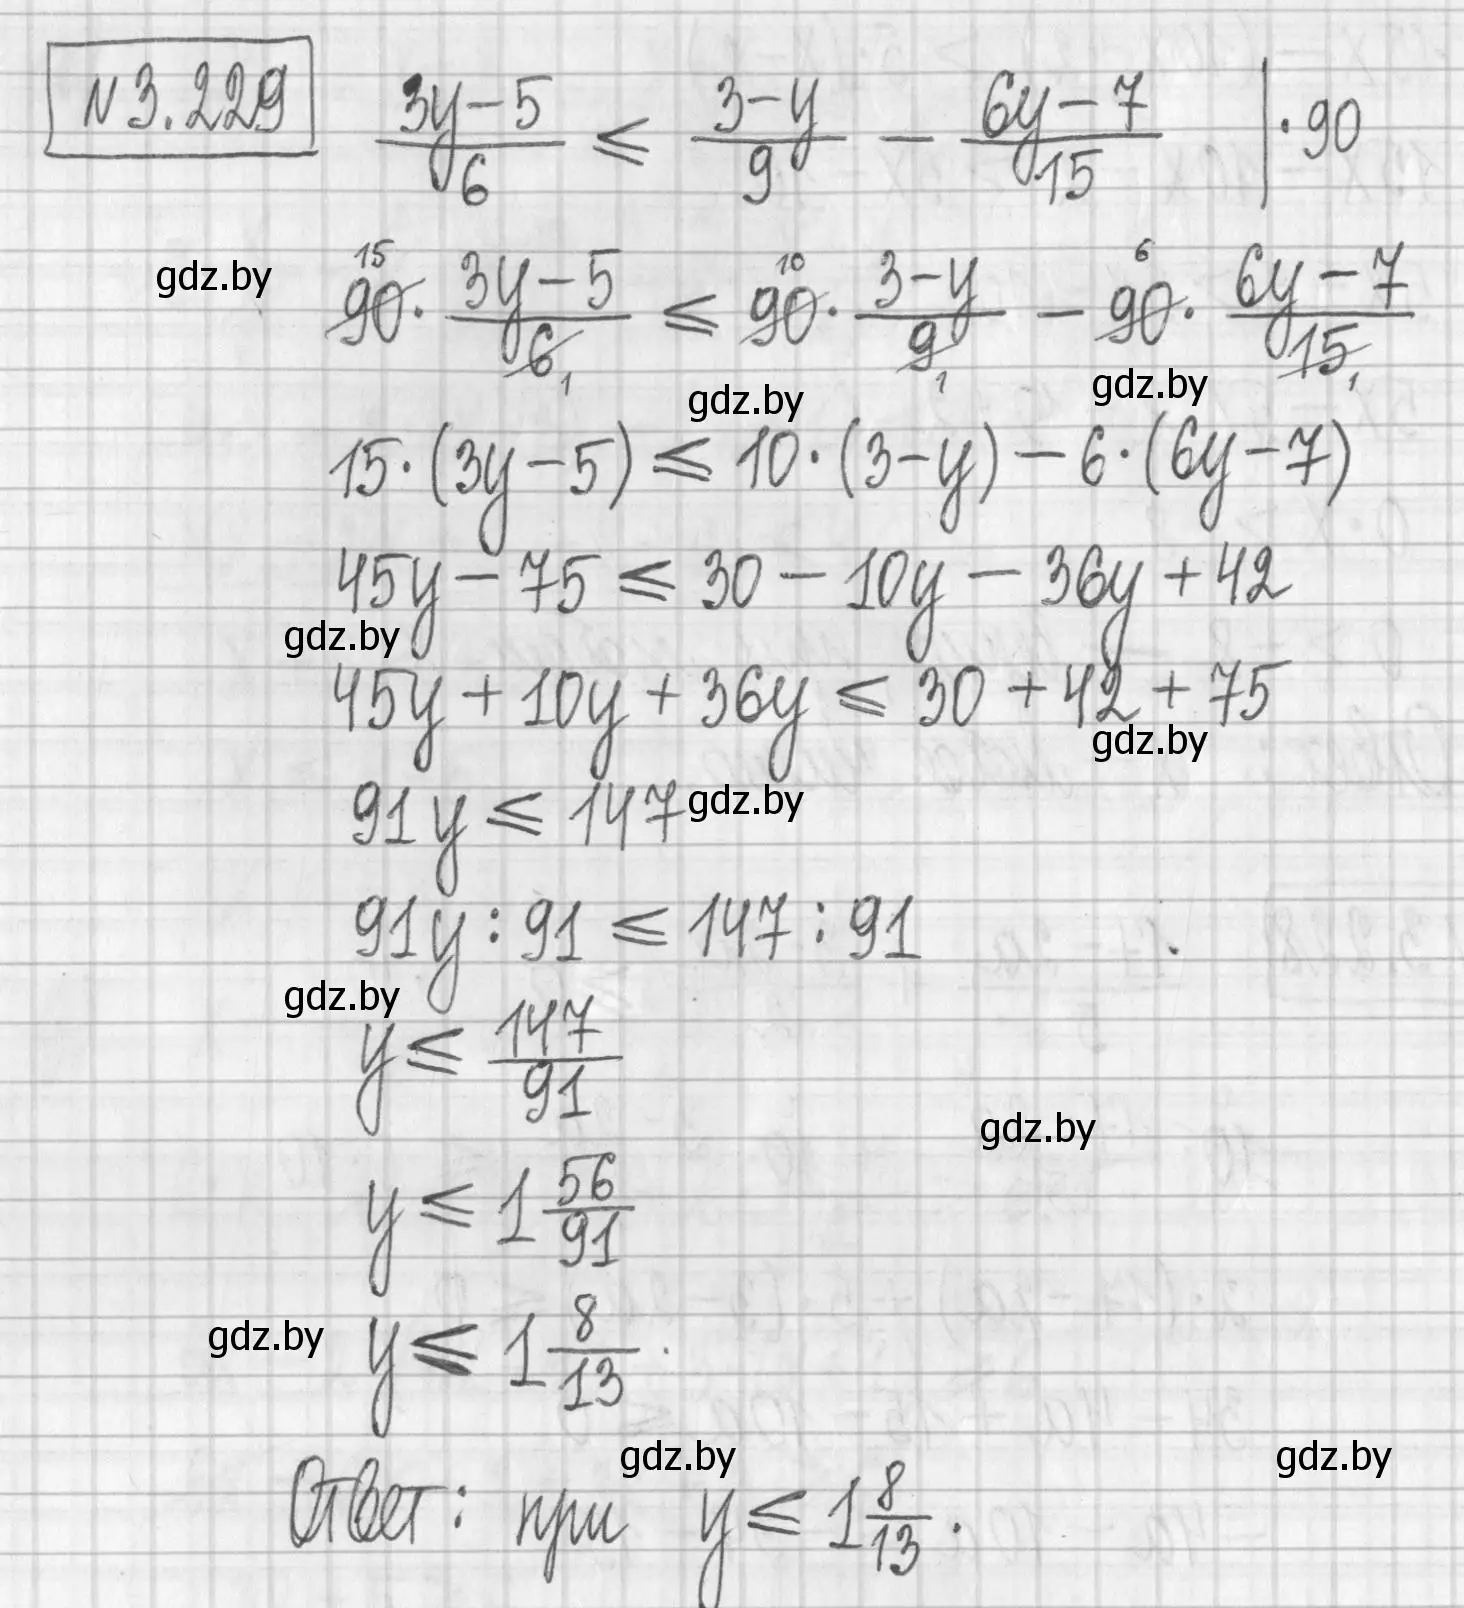 №3.229 (3y-5)/6 ≤ (3-y)/9 - (6y-7)/15 | ·90
gdz.by 90^15 · (3y-5)/6_1 ≤ 90^10 · (3-y)/9_1 - 90^6 · (6y-7)/15_1
gdz.by gdz.by
15·(3y-5) ≤ 10·(3-y) - 6·(6y-7)
45y - 75 ≤ 30 - 10y - 36y + 42
gdz.by
45y + 10y + 36y ≤ 30 + 42 + 75
gdz.by
91y ≤ 147 gdz.by
91y : 91 ≤ 147 : 91
gdz.by
y ≤ 147/91
gdz.by
y ≤ 1 56/91
gdz.by y ≤ 1 8/13.
gdz.by gdz.by
Ответ: при y ≤ 1 8/13.